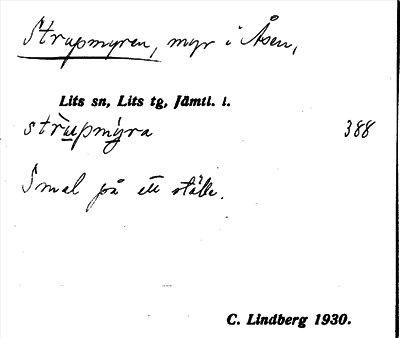 Strupmyren, myr i Åsen,
Lits sn, Lits tg, Jämtl. l.
strùpmýra 388
Smal på ett ställe.
C. Lindberg 1930.